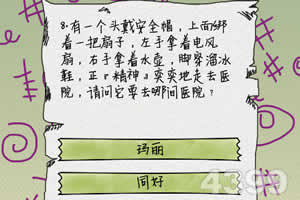 8.有一个头戴安全帽，上面绑
着一把扇子，左手拿着电风
扇，右手拿着水壶，脚穿溜冰
鞋，正『精神』奕奕地走去医
院，请问它要去哪间医院？
玛丽
同好
4399